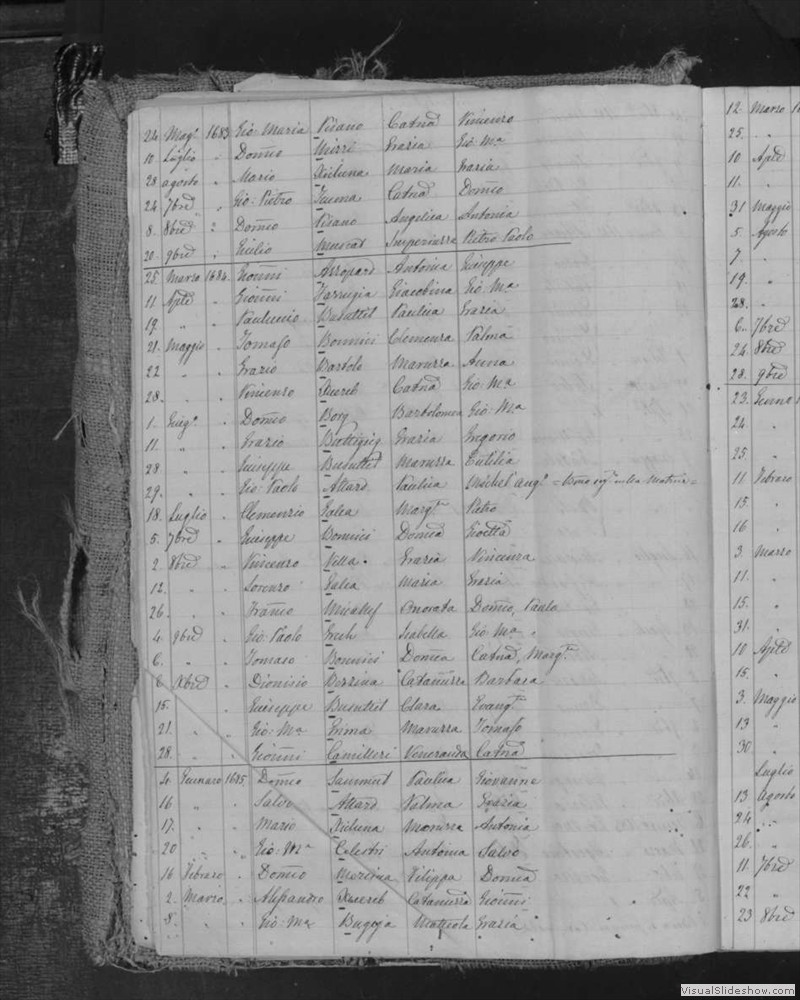 24 Mag.º 1683 Gio: Maria Pisano Catnã Vincenzo
10 Luglio " Domco Micci Grazia Gio: Mª
28 agosto " Mario Xicluna Maria Grazia
24 7bre " Gio: Pietro Catnã Domco
8 8bre " Domco Pisano Angelica Antonia
20 9bre " Giulio Muscat Imperiuzza Pietro Paolo
25 Marzo 1684 Nonni Azzopard Antonia Giuseppe
11 Aple " Gionni Farrugia Giacobina Gio: Mª
19 " " Paulucio Busuttil Paulica Grazia
21 Maggio " Tomaso Bonnici Clemenza Palma
22 " " Grazio Bartolo Maruzza Anna
28 " " Vincenzo Xuereb Catnã Gio: Mª
1 Giug.º " Domco Borg Bartolomea Gio: Mª
11 " " Grazio Buttigieg Grazia Gregorio
28 " " Giuseppe Busuttil Maruzza Eutilia
29 " " Gio: Paolo Attard Paulica Michel Ang.º nella Matrice =
18 Luglio " Clemenzio Galea Marg.ta Pietro
5 7bre " Giuseppe Bonnici Domca
2 8bre " Vincenzo Vella Grazia Vincenza
12 " " Lorenzo Galea Maria Grazia
26 " " Franco Micallef Onorata Domco, Paulo
4 9bre " Gio: Paolo Grech Isabella Gio: Mª
6 " " Tomaso Bonnici Domca Catnã, Marg.ta
6 Xbre " Dionisio Dezzina Catanuzza Barbara
15 " " Giuseppe Busuttil Clara Evang.ta
21 " " Gio: Mª Grima Maruzza Tomaso
28 " " Gionni Camilleri Veneranda Catnã
4 Gennaro 1685 Domco Paulica Giovanne
16 " " Salvo Attard Palma Grazia
17 " " Mario Xicluna Maruzza Antonia
20 " " Gio: Mª Celestri Antonia Salvo
16 Febraro " Domco Mizzina Filippa Domca
2 Marzo " Alessandro Xuereb Catanuzza Gionni
8 " " Gio: Mª Bugeja Matteola Grazia
12 Marzo 1
25 "
10 Aple
11 "
31 Maggio
5 Agosto
7 "
19 "
28 "
6 7bre
24 8bre
28 9bre
23 Genna
24 "
25 "
11 Febraro
15 "
16 "
3 Marzo
11 "
15 "
31 "
10 Aple
15 "
3 Maggio
13 "
30 "
Luglio
13 agosto
24 "
26 "
11 7bre
22 "
23 8bre
VisualSlideshow.com